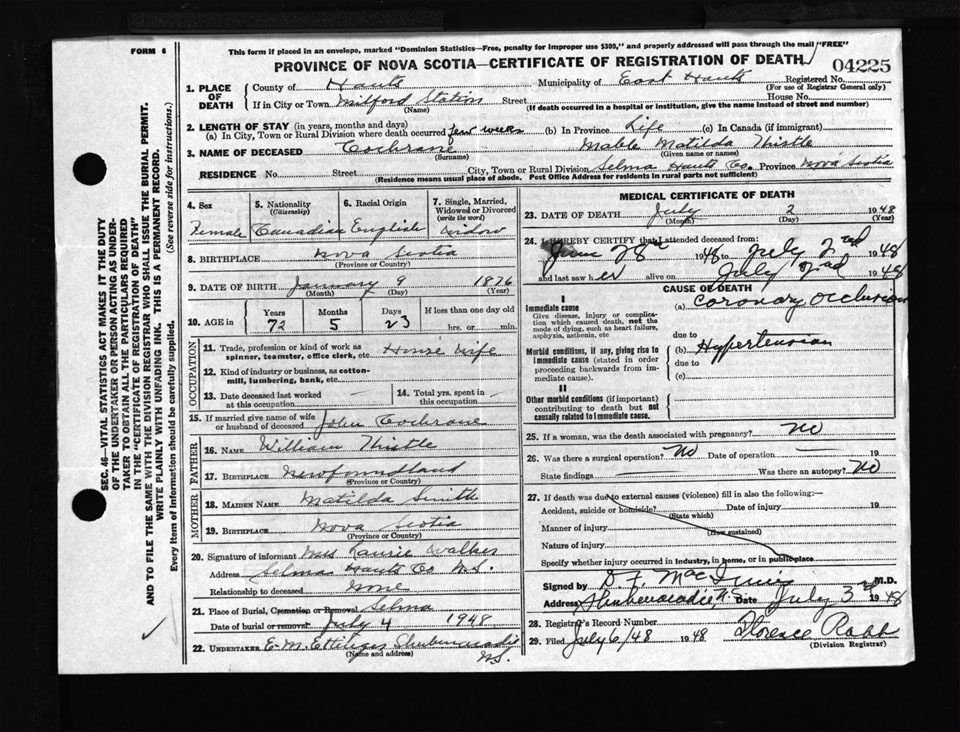 FORM 6
This form if placed in an envelope, marked "Dominion Statistics—Free, penalty for improper use $300," and properly addressed will pass through the mail "FREE"
PROVINCE OF NOVA SCOTIA—CERTIFICATE OF REGISTRATION OF DEATH
04225
1. PLACE OF DEATH
County of Hants Municipality of East Hants Registered No.
(For use of Registrar General only)
If in City or Town Milford Station Street House No.
(Name) (If death occurred in a hospital or institution, give the name instead of street and number)
2. LENGTH OF STAY (in years, months and days)
(a) In City, Town or Rural Division where death occurred few weeks (b) In Province Life (c) In Canada (if immigrant)
3. NAME OF DECEASED Cochrane Mable Matilda Thistle
(Surname) (Given name or names)
RESIDENCE No. Street City, Town or Rural Division Selma Hants Co. Province Nova Scotia
(Residence means usual place of abode. Post Office Address for residents in rural parts not sufficient)
4. Sex
Female
5. Nationality
(Citizenship)
Canadian
6. Racial Origin
English
7. Single, Married, Widowed or Divorced
(write the word)
Widow
8. BIRTHPLACE Nova Scotia
(Province or Country)
9. DATE OF BIRTH January 9 1876
(Month) (Day) (Year)
10. AGE in Years Months Days If less than one day old
72 5 23 hrs. or min.
OCCUPATION
11. Trade, profession or kind of work as
spinner, teamster, office clerk, etc. House wife
12. Kind of industry or business, as cotton-
mill, lumbering, bank, etc.
13. Date deceased last worked at this occupation —
14. Total yrs. spent in this occupation —
15. If married give name of wife
or husband of deceased John Cochrane
FATHER
16. NAME William Thistle
17. BIRTHPLACE Newfoundland
(Province or Country)
MOTHER
18. MAIDEN NAME Matilda Smith
19. BIRTHPLACE Nova Scotia
(Province or Country)
20. Signature of informant Mrs Laurie Walker
Address Selma Hants Co N.S.
Relationship to deceased
21. Place of Burial, Cremation or Removal Selma
Date of burial or removal July 4 1948
22. UNDERTAKER E. M. Shubenacadie
(Name and address) N.S.
MEDICAL CERTIFICATE OF DEATH
23. DATE OF DEATH July 2 1948
(Month) (Day)
24. I HEREBY CERTIFY that I attended deceased from:
June 28 1948 to July 2nd 1948
and last saw her alive on July 2nd 1948
CAUSE OF DEATH
I
Immediate cause
Give disease, injury or complication which caused death, not the mode of dying, such as heart failure, asphyxia, asthenia, etc.
(a) Coronary Occlusion
due to
Morbid conditions, if any, giving rise to immediate cause (stated in order proceeding backwards from immediate cause).
(b) Hypertension
due to
(c)
II
Other morbid conditions (if important) contributing to death but not causally related to immediate cause.
25. If a woman, was the death associated with pregnancy? No
26. Was there a surgical operation? No Date of operation — 19
State findings Was there an autopsy? No
27. If death was due to external causes (violence) fill in also the following:—
Accident, suicide or homicide? Date of injury 19
(State which)
Manner of injury
(How sustained)
Nature of injury
Specify whether injury occurred in industry, in home, or in public place
Signed by M.D.
Address Shubenacadie, N.S. Date July 3rd 1948
28. Registrar's Record Number
29. Filed July 6/48 1948 Florence
(Division Registrar)
SEC. 46—VITAL STATISTICS ACT MAKES IT THE DUTY
OF THE UNDERTAKER OR PERSON ACTING AS UNDER-
TAKER TO OBTAIN ALL THE PARTICULARS REQUIRED
IN THE "CERTIFICATE OF REGISTRATION OF DEATH"
AND TO FILE THE SAME WITH THE DIVISION REGISTRAR WHO SHALL ISSUE THE BURIAL PERMIT.
WRITE PLAINLY WITH UNFADING INK. THIS IS A PERMANENT RECORD.
Every item of information should be carefully supplied. (See reverse side for instructions.)